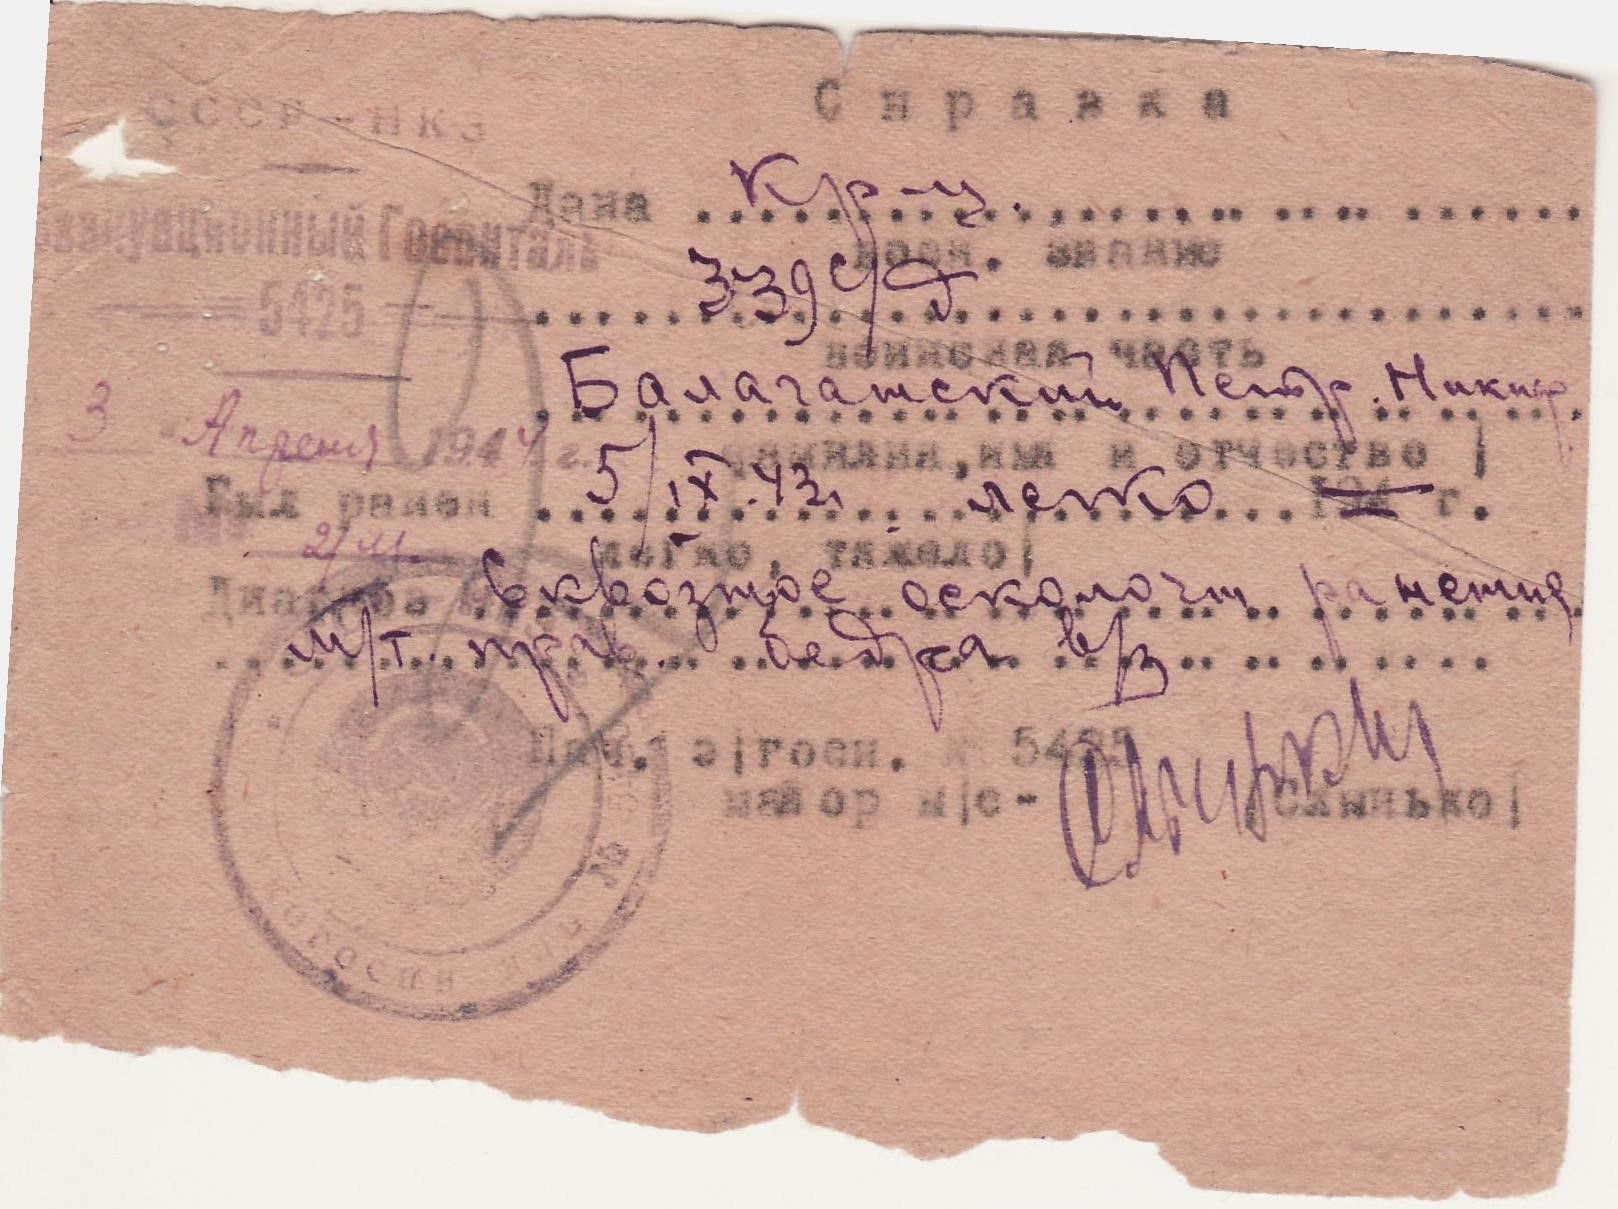 СССР-НКЗ
Справка
Дана Кр-ц.
Эвакуационный Госпиталь
воен. звание
5425
339 с/д
воинская часть
Балагашский Петр. Никиф.
3 Апреля 1944 г.
фамилия, имя и отчество|
Был ранен 5/IX.43. легко 194 г.
№ 2/м
легко, тяжело|
Диагноз сквозное осколочн ранение
м/т. прав. бедра в/з
Нач. э|госп. № 5425
майор м|с- |Слынько|